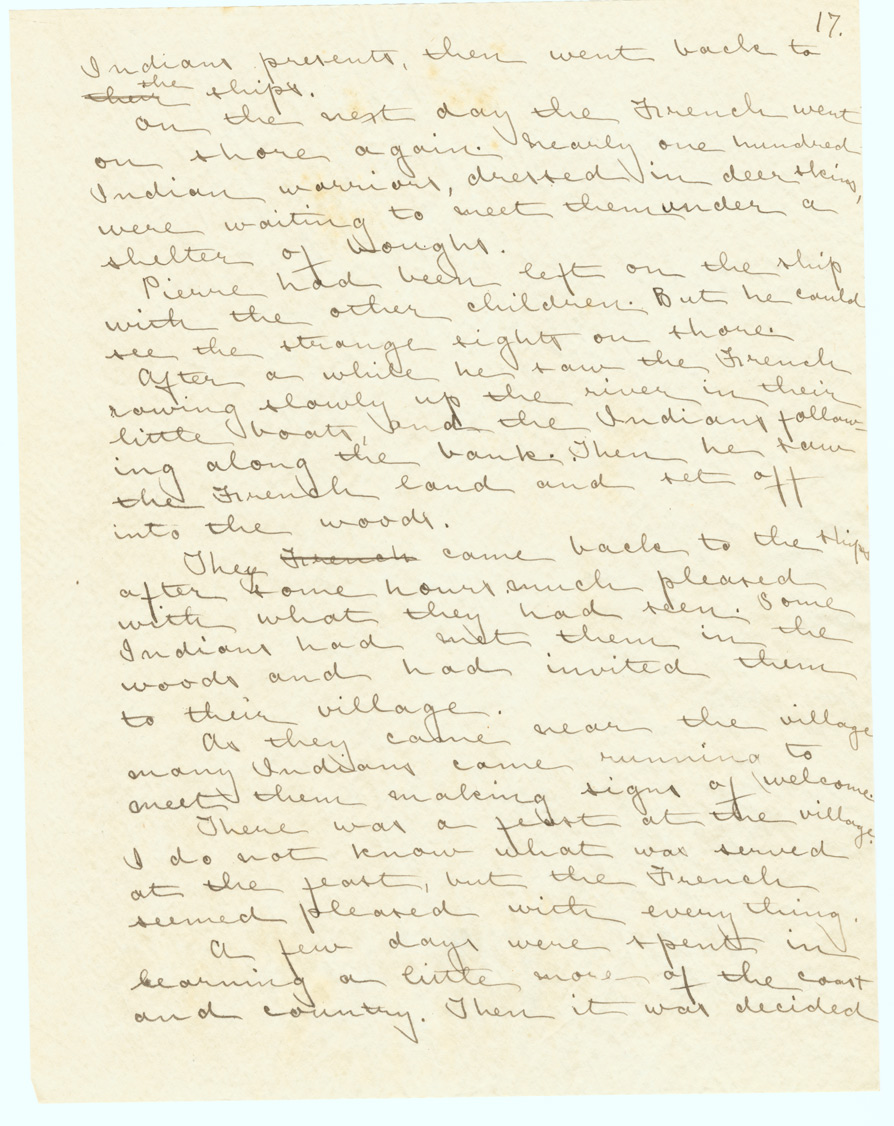 17.
Indians presents, then went back to
~~their~~ the ships.
On the next day the French went
on shore again. Nearly one hundred
Indian warriors, dressed in deer skins,
were waiting to meet them under a
shelter of boughs.
Pierre had been left on the ship
with the other children. But he could
see the strange sights on shore.
After a while he saw the French
rowing slowly up the river in their
little boats, and the Indians follow-
ing along the bank. Then he saw
the French land and set off
into the woods.
They ~~French~~ came back to the ships
after some hours much pleased
with what they had seen. Some
Indians had met them in the
woods and had invited them
to their village.
As they came near the village
many Indians came running to
meet them making signs of welcome.
There was a feast at the village.
I do not know what was served
at the feast, but the French
seemed pleased with everything.
A few days were spent in
learning a little more of the coast
and country. Then it was decided